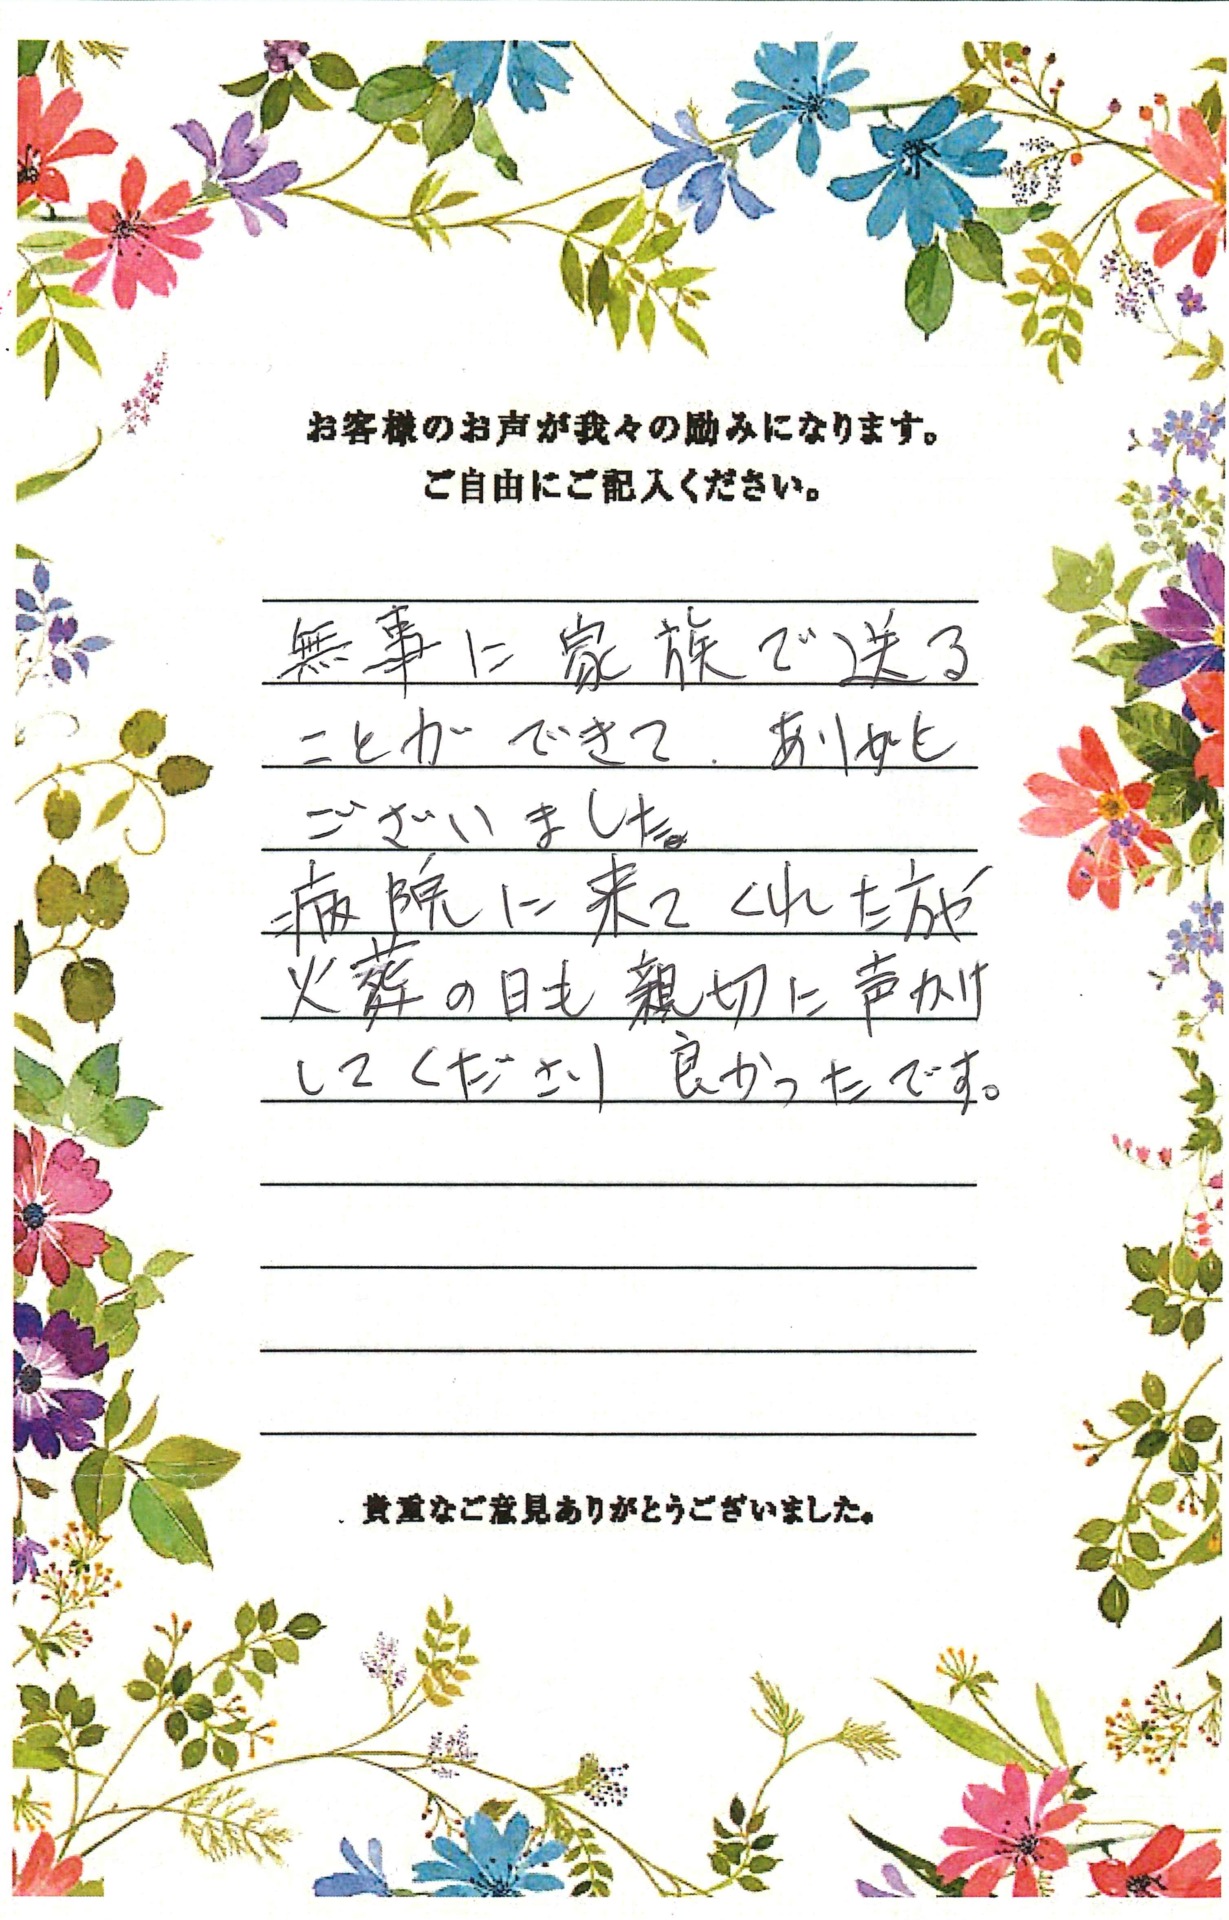 お客様のお声が我々の励みになります。
ご自由にご記入ください。
無事に家族で送る
ことができて、ありがと
ございました。
病院に来てくれた方や
火葬の日も親切に声かけ
してくださり 良かったです。
貴重なご意見ありがとうございました。